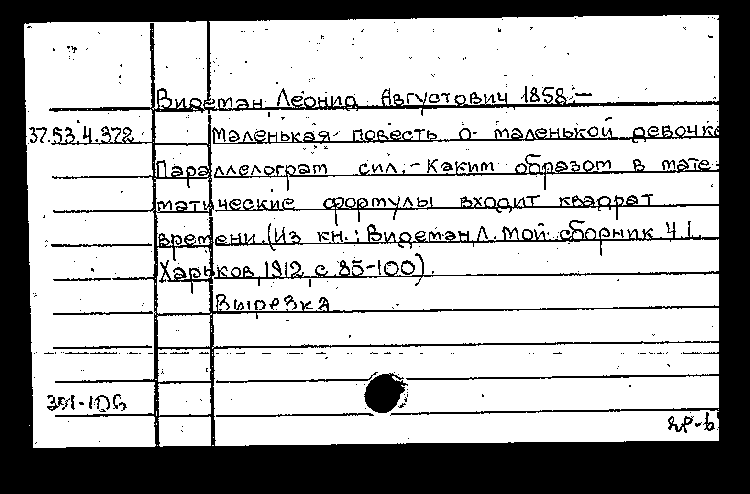 Видеман, Леонид Августович, 1858.-
37.53.4.372 Маленькая повесть о маленькой девочке
Параллелограм сил.- Каким образом в мате-
матические формулы входит квадрат
времени. (Из кн.: Видеман, Л. Мой сборник Ч I.
Харьков, 1912, с 85-100).
Вырезка